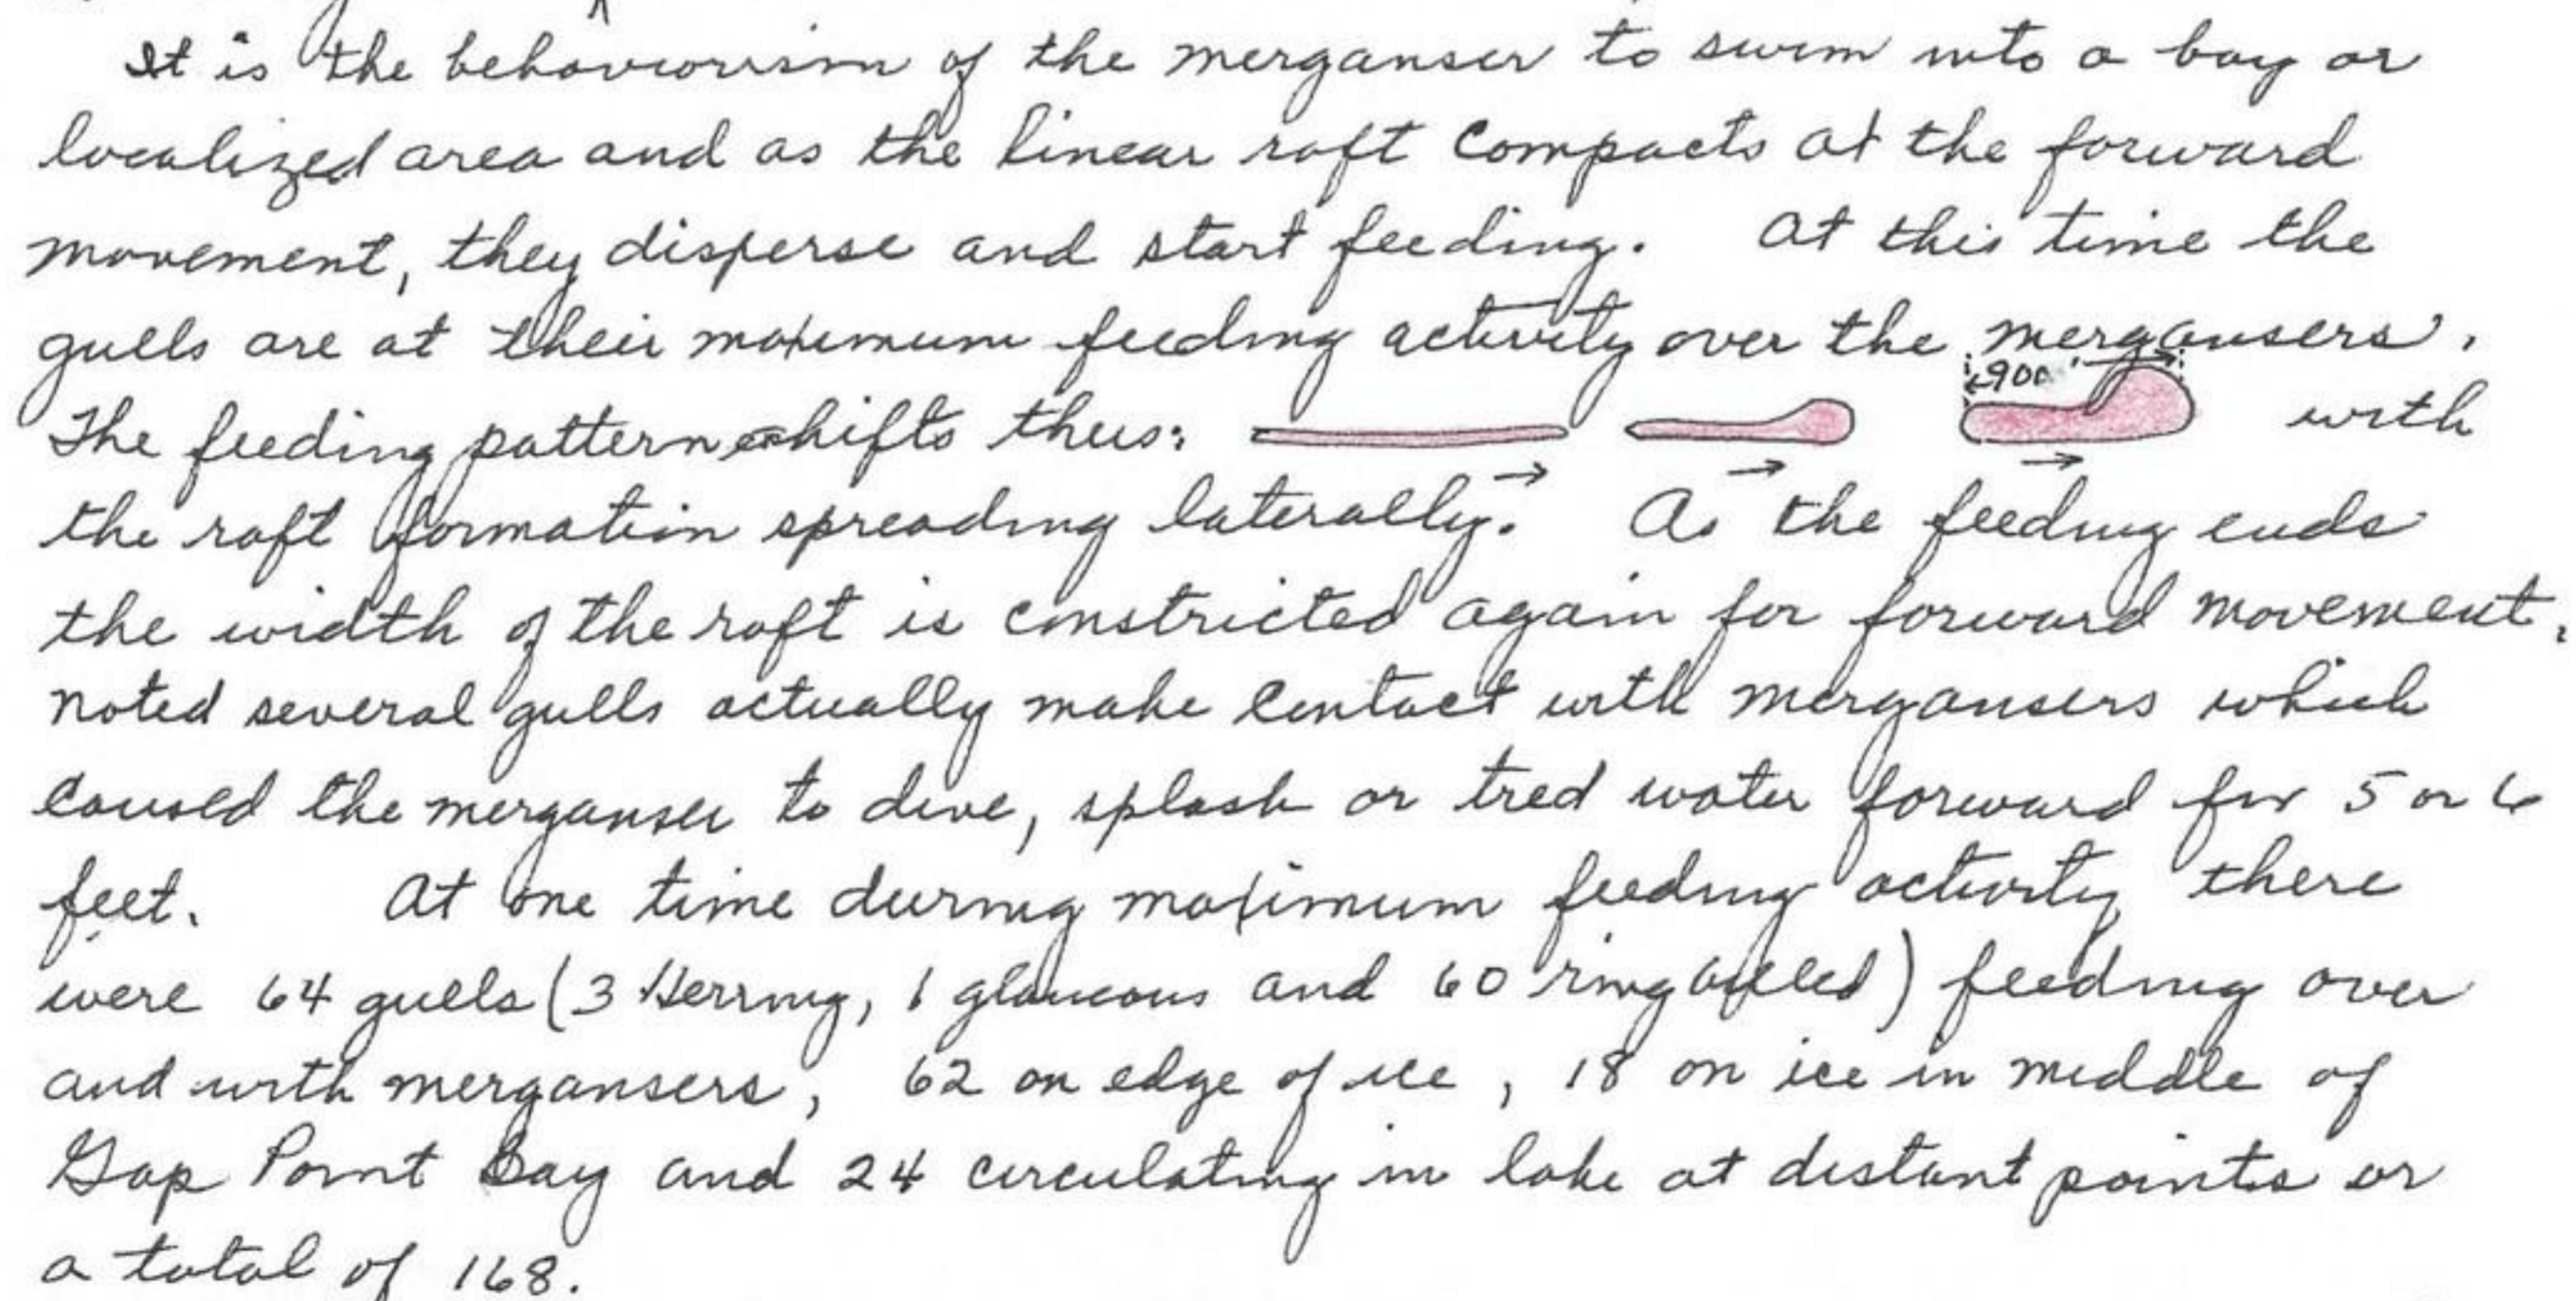 It is the behaviorism of the merganser to swim into a bay or
localized area and as the linear raft compacts at the forward
movement, they disperse and start feeding. At this time the
gulls are at their maximum feeding activity over the mergansers.
900'
The feeding pattern shifts thus: with
the raft formation spreading laterally. As the feeding ends
the width of the raft is constricted again for forward movement.
Noted several gulls actually make contact with mergansers which
caused the merganser to dive, splash or tred water forward for 5 or 6
feet. At one time during maximum feeding activity there
were 64 gulls (3 Herring, 1 glaucous and 60 ringbilled) feeding over
and with mergansers, 62 on edge of ice, 18 on ice in middle of
Gap Point Bay and 24 circulating in lake at distant points or
a total of 168.